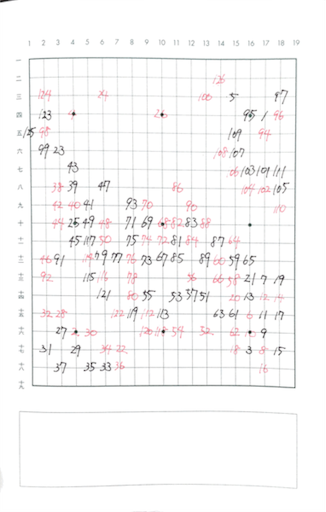 1 2 3 4 5 6 7 8 9 10 11 12 13 14 15 16 17 18 19
一
二 126
三 124 24 100 5 97
四 123 26 95 1 96
五 125 98 109 94
六 99 23 108 107
七 43 103 101 111
八 38 39 47 86 104 102 105
九 42 40 41 93 70 90 110
十 44 25 49 48 71 69 68 82 83 88
十一 45 117 50 75 74 72 81 84 87 64
十二 46 91 79 77 76 73 67 85 89 60 59 65
十三 92 115 78 66 58 21 7 19
十四 121 80 55 53 57 51 20 13 12 14
十五 32 28 122 119 112 113 63 61 6 11 17
十六 27 30 120 54 52 62 9
十七 31 29 34 22 18 3 8 15
十八 37 35 33 36 16
十九